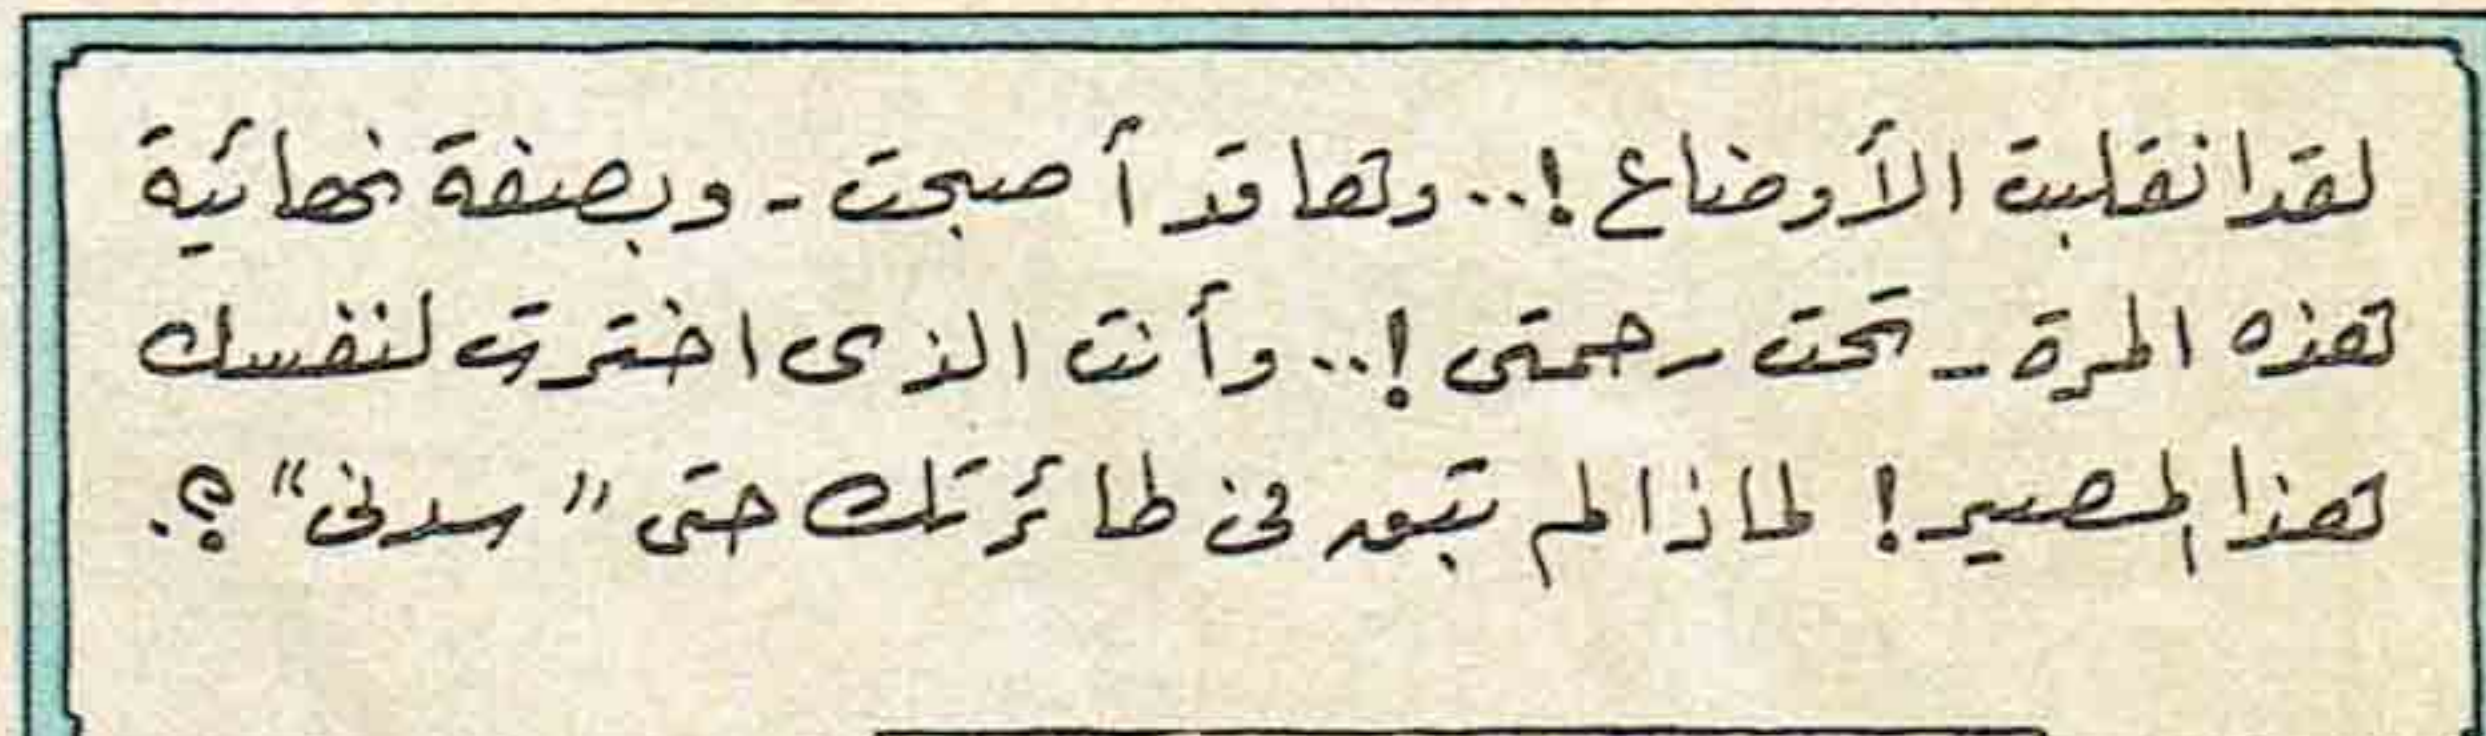 لقد انقلبت الأوضاع !.. وها قد أصبحت - وبصفة نهائية
هذه المرة - تحت رحمتى !.. وأنت الذى اخترت لنفسك
هذا المصير ! لماذا لم تبق فى طائرتك حتى "سدنى" ؟.